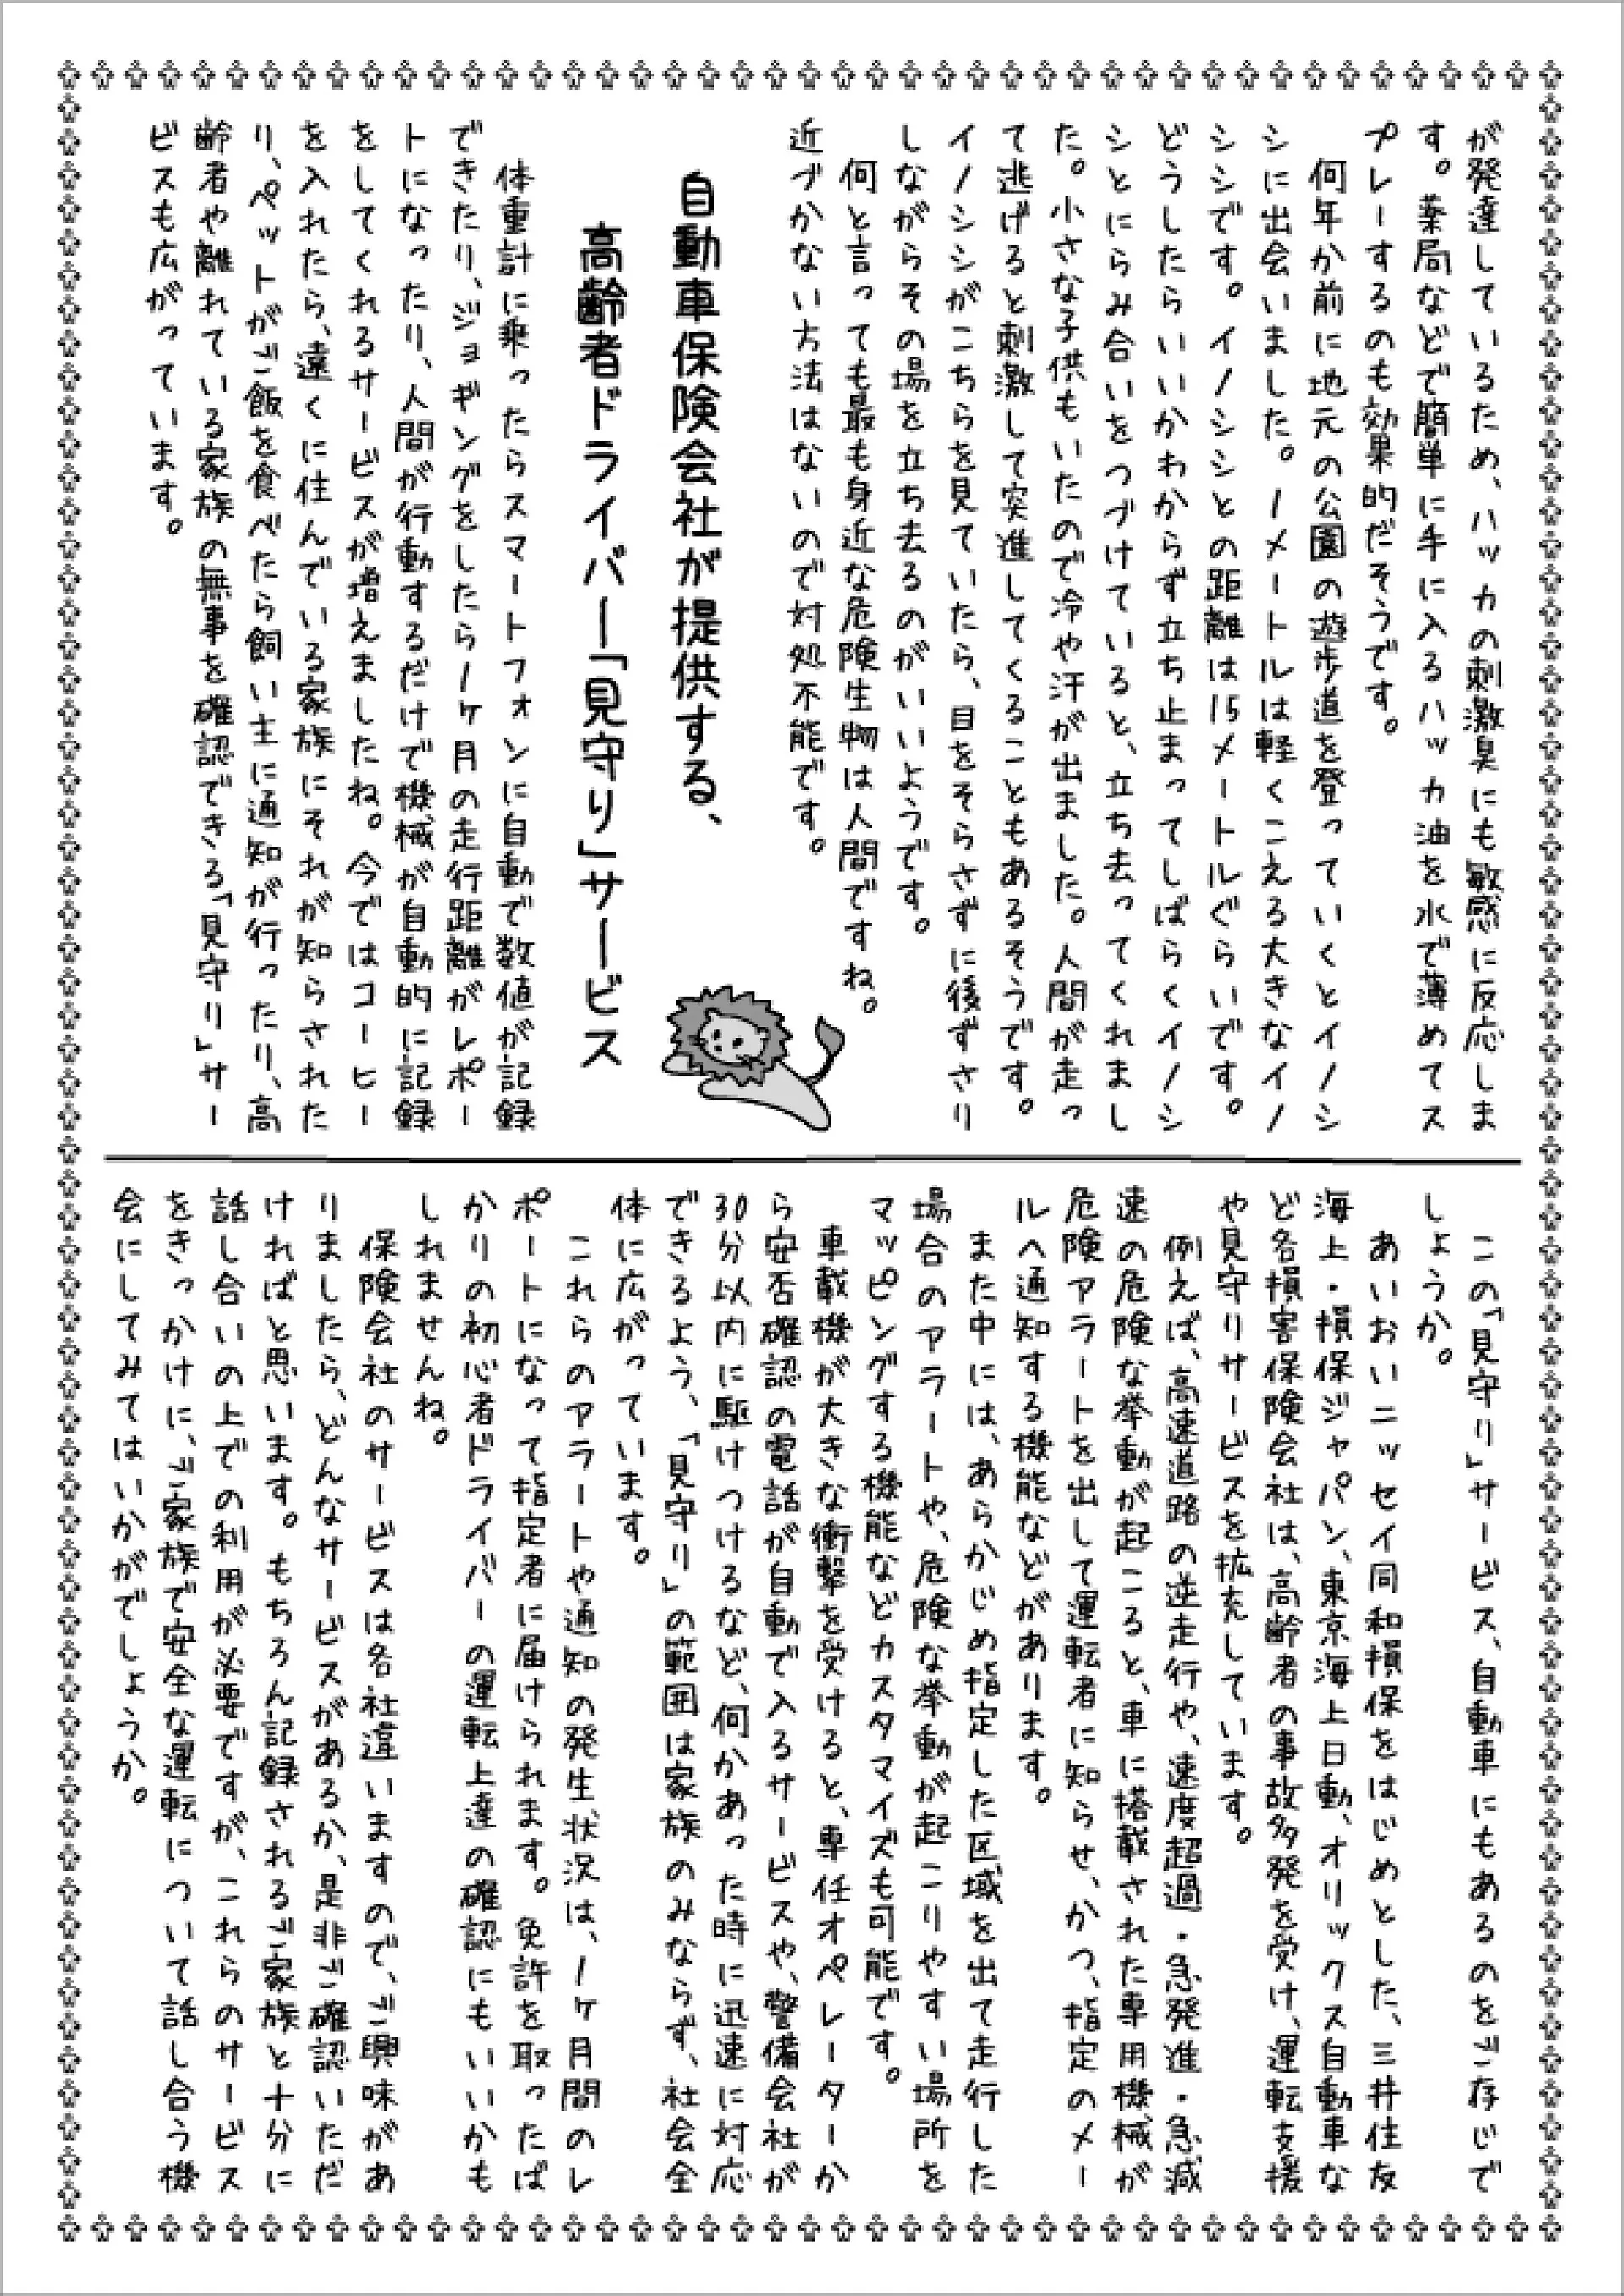 が発達しているため、ハッカの刺激臭にも敏感に反応しま
す。薬局などで簡単に手に入るハッカ油を水で薄めてス
プレーするのも効果的だそうです。
何年か前に地元の公園の遊歩道を登っていくとイノシ
シに出会いました。1メートルは軽くこえる大きなイノ
シシです。イノシシとの距離は15メートルぐらいです。
どうしたらいいかわからず立ち止まってしばらくイノシ
シとにらみ合いをつづけていると、立ち去ってくれまし
た。小さな子供もいたので冷や汗が出ました。人間が走っ
て逃げると刺激して突進してくることもあるそうです。
イノシシがこちらを見ていたら、目をそらさずに後ずさり
しながらその場を立ち去るのがいいようです。
何と言っても最も身近な危険生物は人間ですね。
近づかない方法はないので対処不能です。
自動車保険会社が提供する、
高齢者ドライバー「見守り」サービス
体重計に乗ったらスマートフォンに自動で数値が記録
できたり、ジョギングをしたら1ヶ月の走行距離がレポー
トになったり、人間が行動するだけで機械が自動的に記録
をしてくれるサービスが増えましたね。今ではコーヒー
を入れたら、遠くに住んでいる家族にそれが知らされた
り、ペットがご飯を食べたら飼い主に通知が行ったり、高
齢者や離れている家族の無事を確認できる「見守り」サー
ビスも広がっています。
この「見守り」サービス、自動車にもあるのをご存じで
しょうか。
あいおいニッセイ同和損保をはじめとした、三井住友
海上・損保ジャパン、東京海上日動、オリックス自動車な
ど各損害保険会社は、高齢者の事故多発を受け、運転支援
や見守りサービスを拡充しています。
例えば、高速道路の逆走行や、速度超過・急発進・急減
速の危険な挙動が起こると、車に搭載された専用機械が
危険アラートを出して運転者に知らせ、かつ、指定のメー
ルへ通知する機能などがあります。
また中には、あらかじめ指定した区域を出て走行した
場合のアラートや、危険な挙動が起こりやすい場所を
マッピングする機能などカスタマイズも可能です。
車載機が大きな衝撃を受けると、専任オペレーターか
ら安否確認の電話が自動で入るサービスや、警備会社が
30分以内に駆けつけるなど、何かあった時に迅速に対応
できるよう、「見守り」の範囲は家族のみならず、社会全
体に広がっています。
これらのアラートや通知の発生状況は、1ヶ月間のレ
ポートになって指定者に届けられます。免許を取ったば
かりの初心者ドライバーの運転上達の確認にもいいかも
しれませんね。
保険会社のサービスは各社違いますので、ご興味があ
りましたら、どんなサービスがあるか、是非ご確認いただ
ければと思います。もちろん記録されるご家族と十分に
話し合いの上での利用が必要ですが、これらのサービス
をきっかけに、ご家族で安全な運転について話し合う機
会にしてみてはいかがでしょうか。